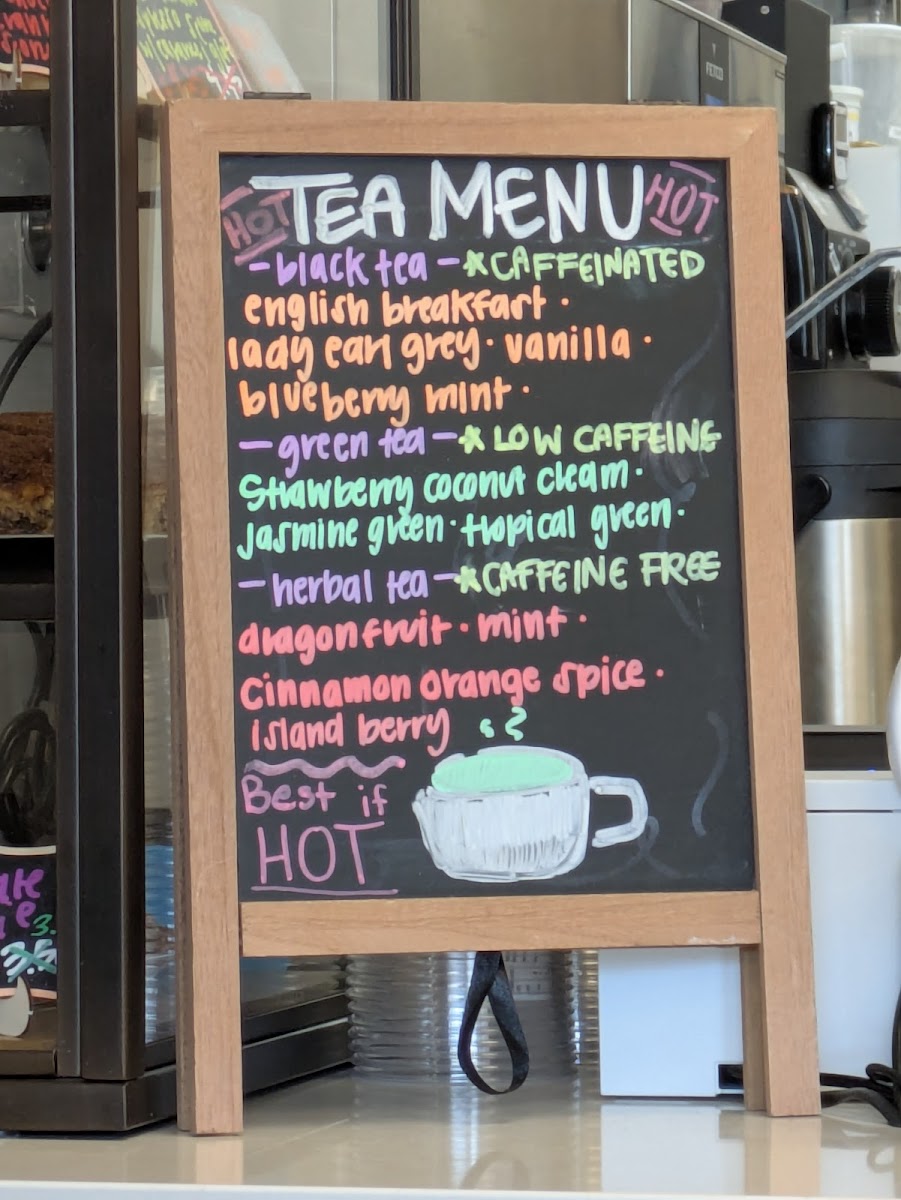 HOT TEA MENU HOT
-black tea-*CAFFEINATED
english breakfast ·
lady earl grey · vanilla ·
blueberry mint ·
-green tea-*LOW CAFFEINE
Strawberry coconut cream ·
Jasmine green · tropical green ·
-herbal tea-*CAFFEINE FREE
dragonfruit · mint ·
Cinnamon orange spice ·
island berry
Best if
HOT
FETCO
3.5